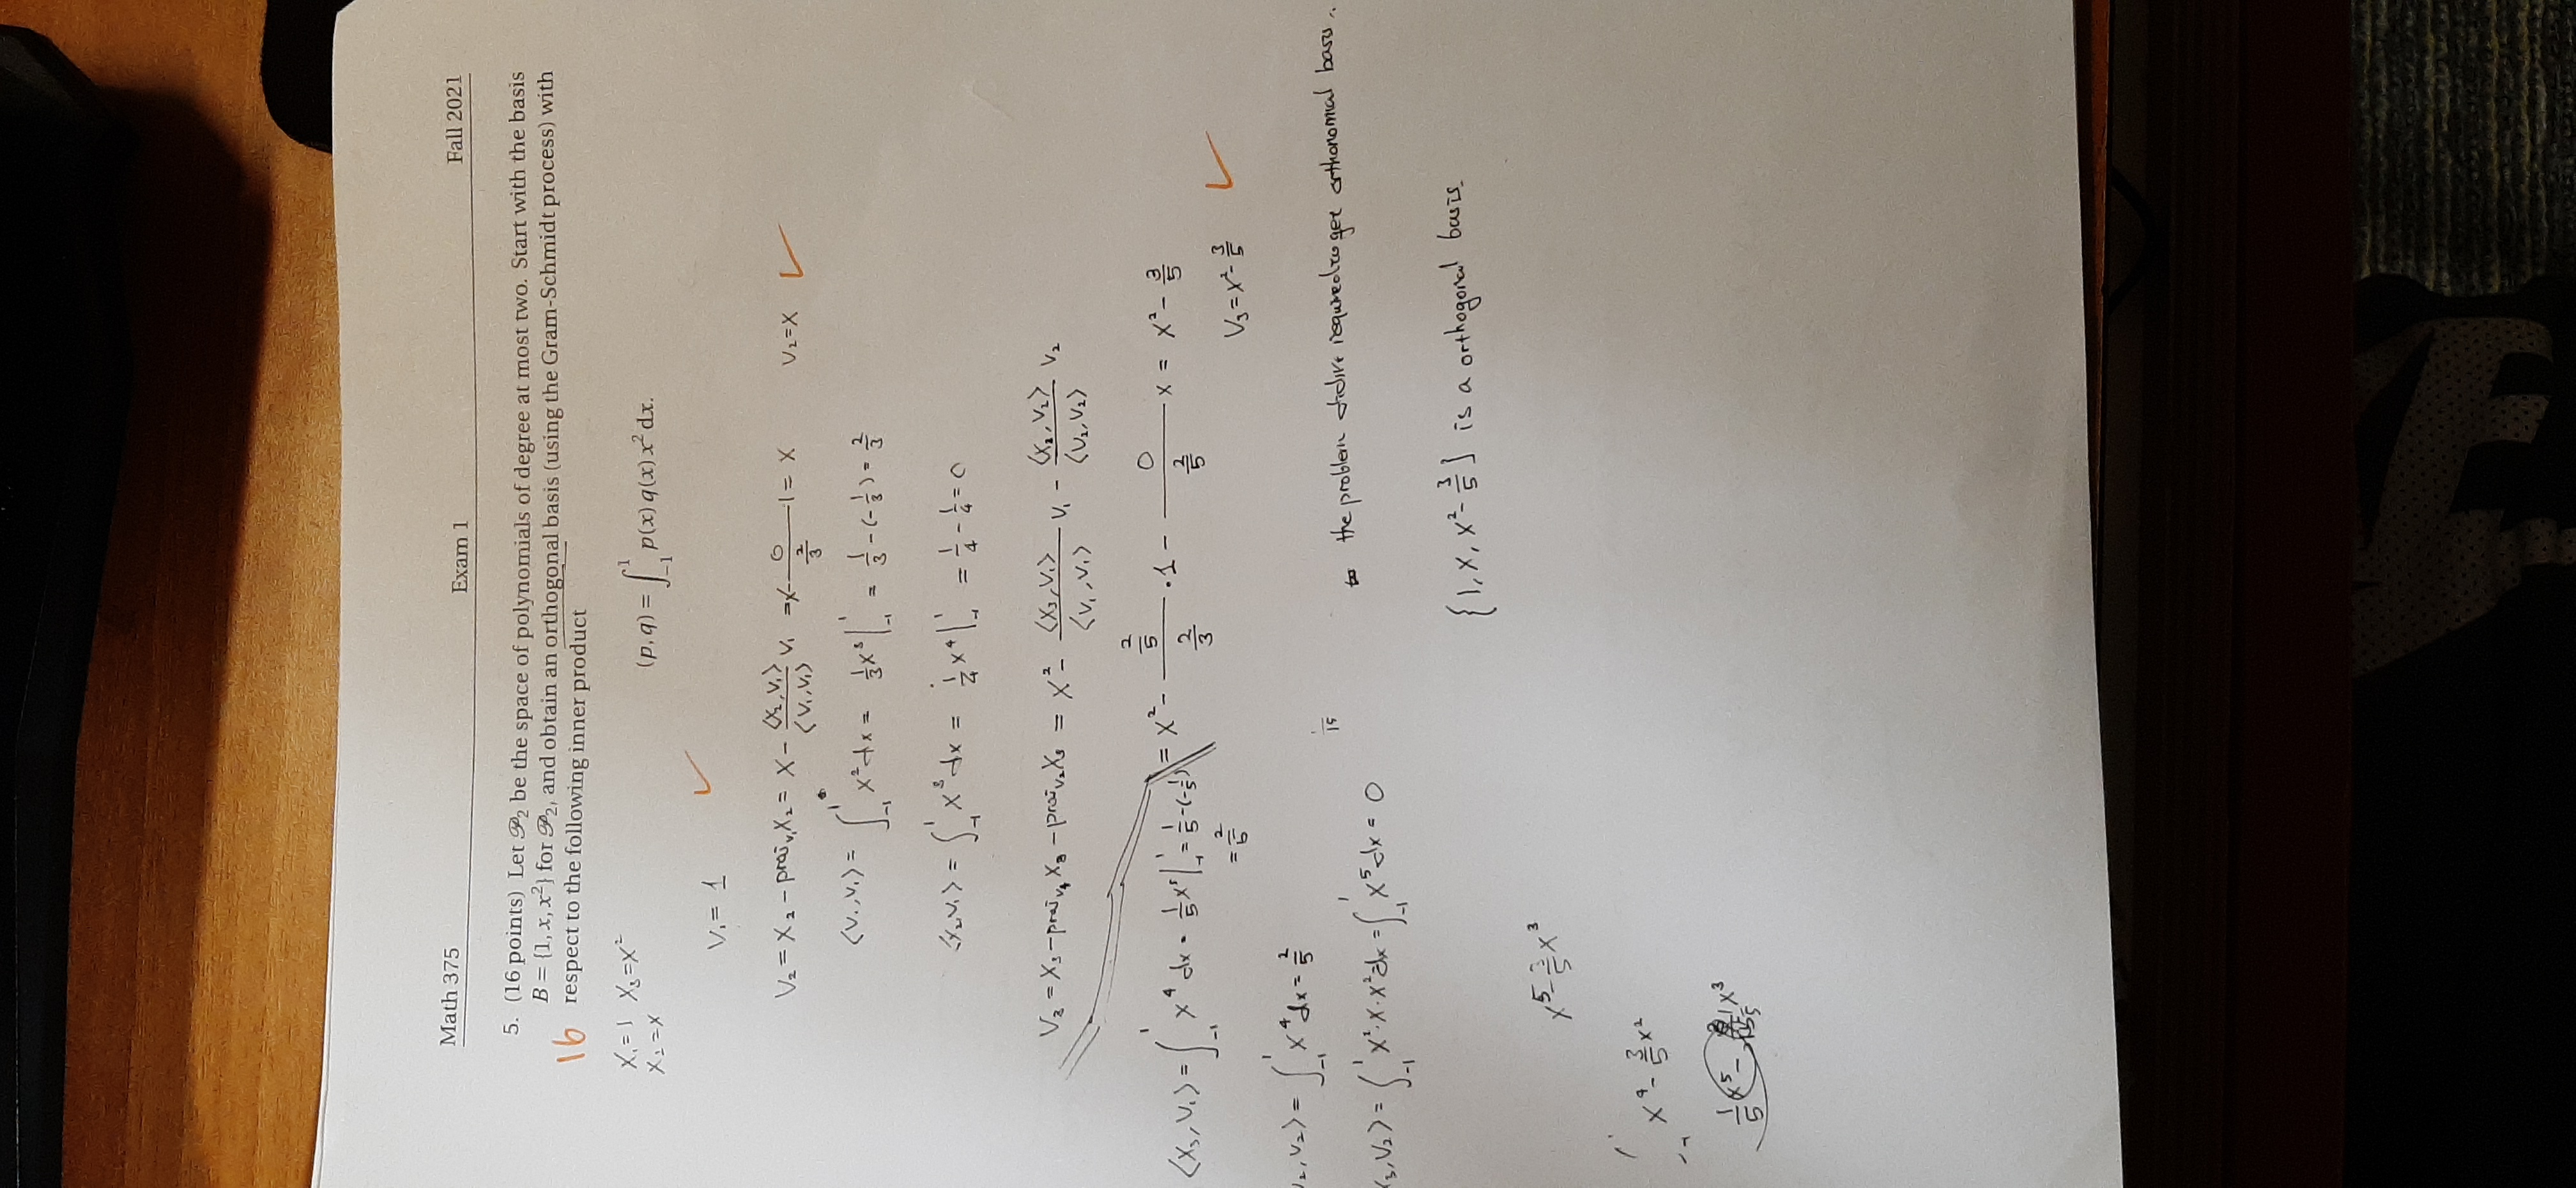 Math 375 Exam 1 Fall 2021
5. (16 points) Let 𝒫₂ be the space of polynomials of degree at most two. Start with the basis
B = {1, x, x²} for 𝒫₂, and obtain an orthogonal basis (using the Gram-Schmidt process) with
16 respect to the following inner product
X₁=1 X₃=X²
X₂=X
(p, q) = ∫₋₁¹ p(x) q(x) x² dx.
V₁= 1 ✓
V₂ = X₂ - proj_v₁ X₂ = X - <X₂,V₁>/<V₁,V₁> V₁ = X - 0/(2/3) · 1 = X V₂=X ✓
<V₁,V₁> = ∫₋₁¹ x² dx = 1/3 x³ |₋₁¹ = 1/3 - (-1/3) = 2/3
<X₂V₁> = ∫₋₁¹ x³ dx = 1/4 x⁴ |₋₁¹ = 1/4 - 1/4 = 0
V₃ = X₃ - proj_v₁ X₃ - proj_v₂ X₃ = X² - <X₃,V₁>/<V₁,V₁> V₁ - <X₃,V₂>/<V₂,V₂> V₂
= X² - (2/5)/(2/3) · 1 - 0/(2/5) X = X² - 3/5
<X₃,V₁> = ∫₋₁¹ x⁴ dx = 1/5 x⁵ |₋₁¹ = 1/5 - (-1/5)
= 2/5
V₃ = X² - 3/5 ✓
₂,V₂> = ∫₋₁¹ x⁴ dx = 2/5
1/15
the problem didn't required to get orthonomial basis.
₃,V₂> = ∫₋₁¹ x²·x·x² dx = ∫₋₁¹ x⁵ dx = 0
{1, X, X² - 3/5} is a orthogonal basis.
x⁵ - 3/5 x³
x⁴ - 3/5 x²
1/5 x⁵ - 1/5 x³